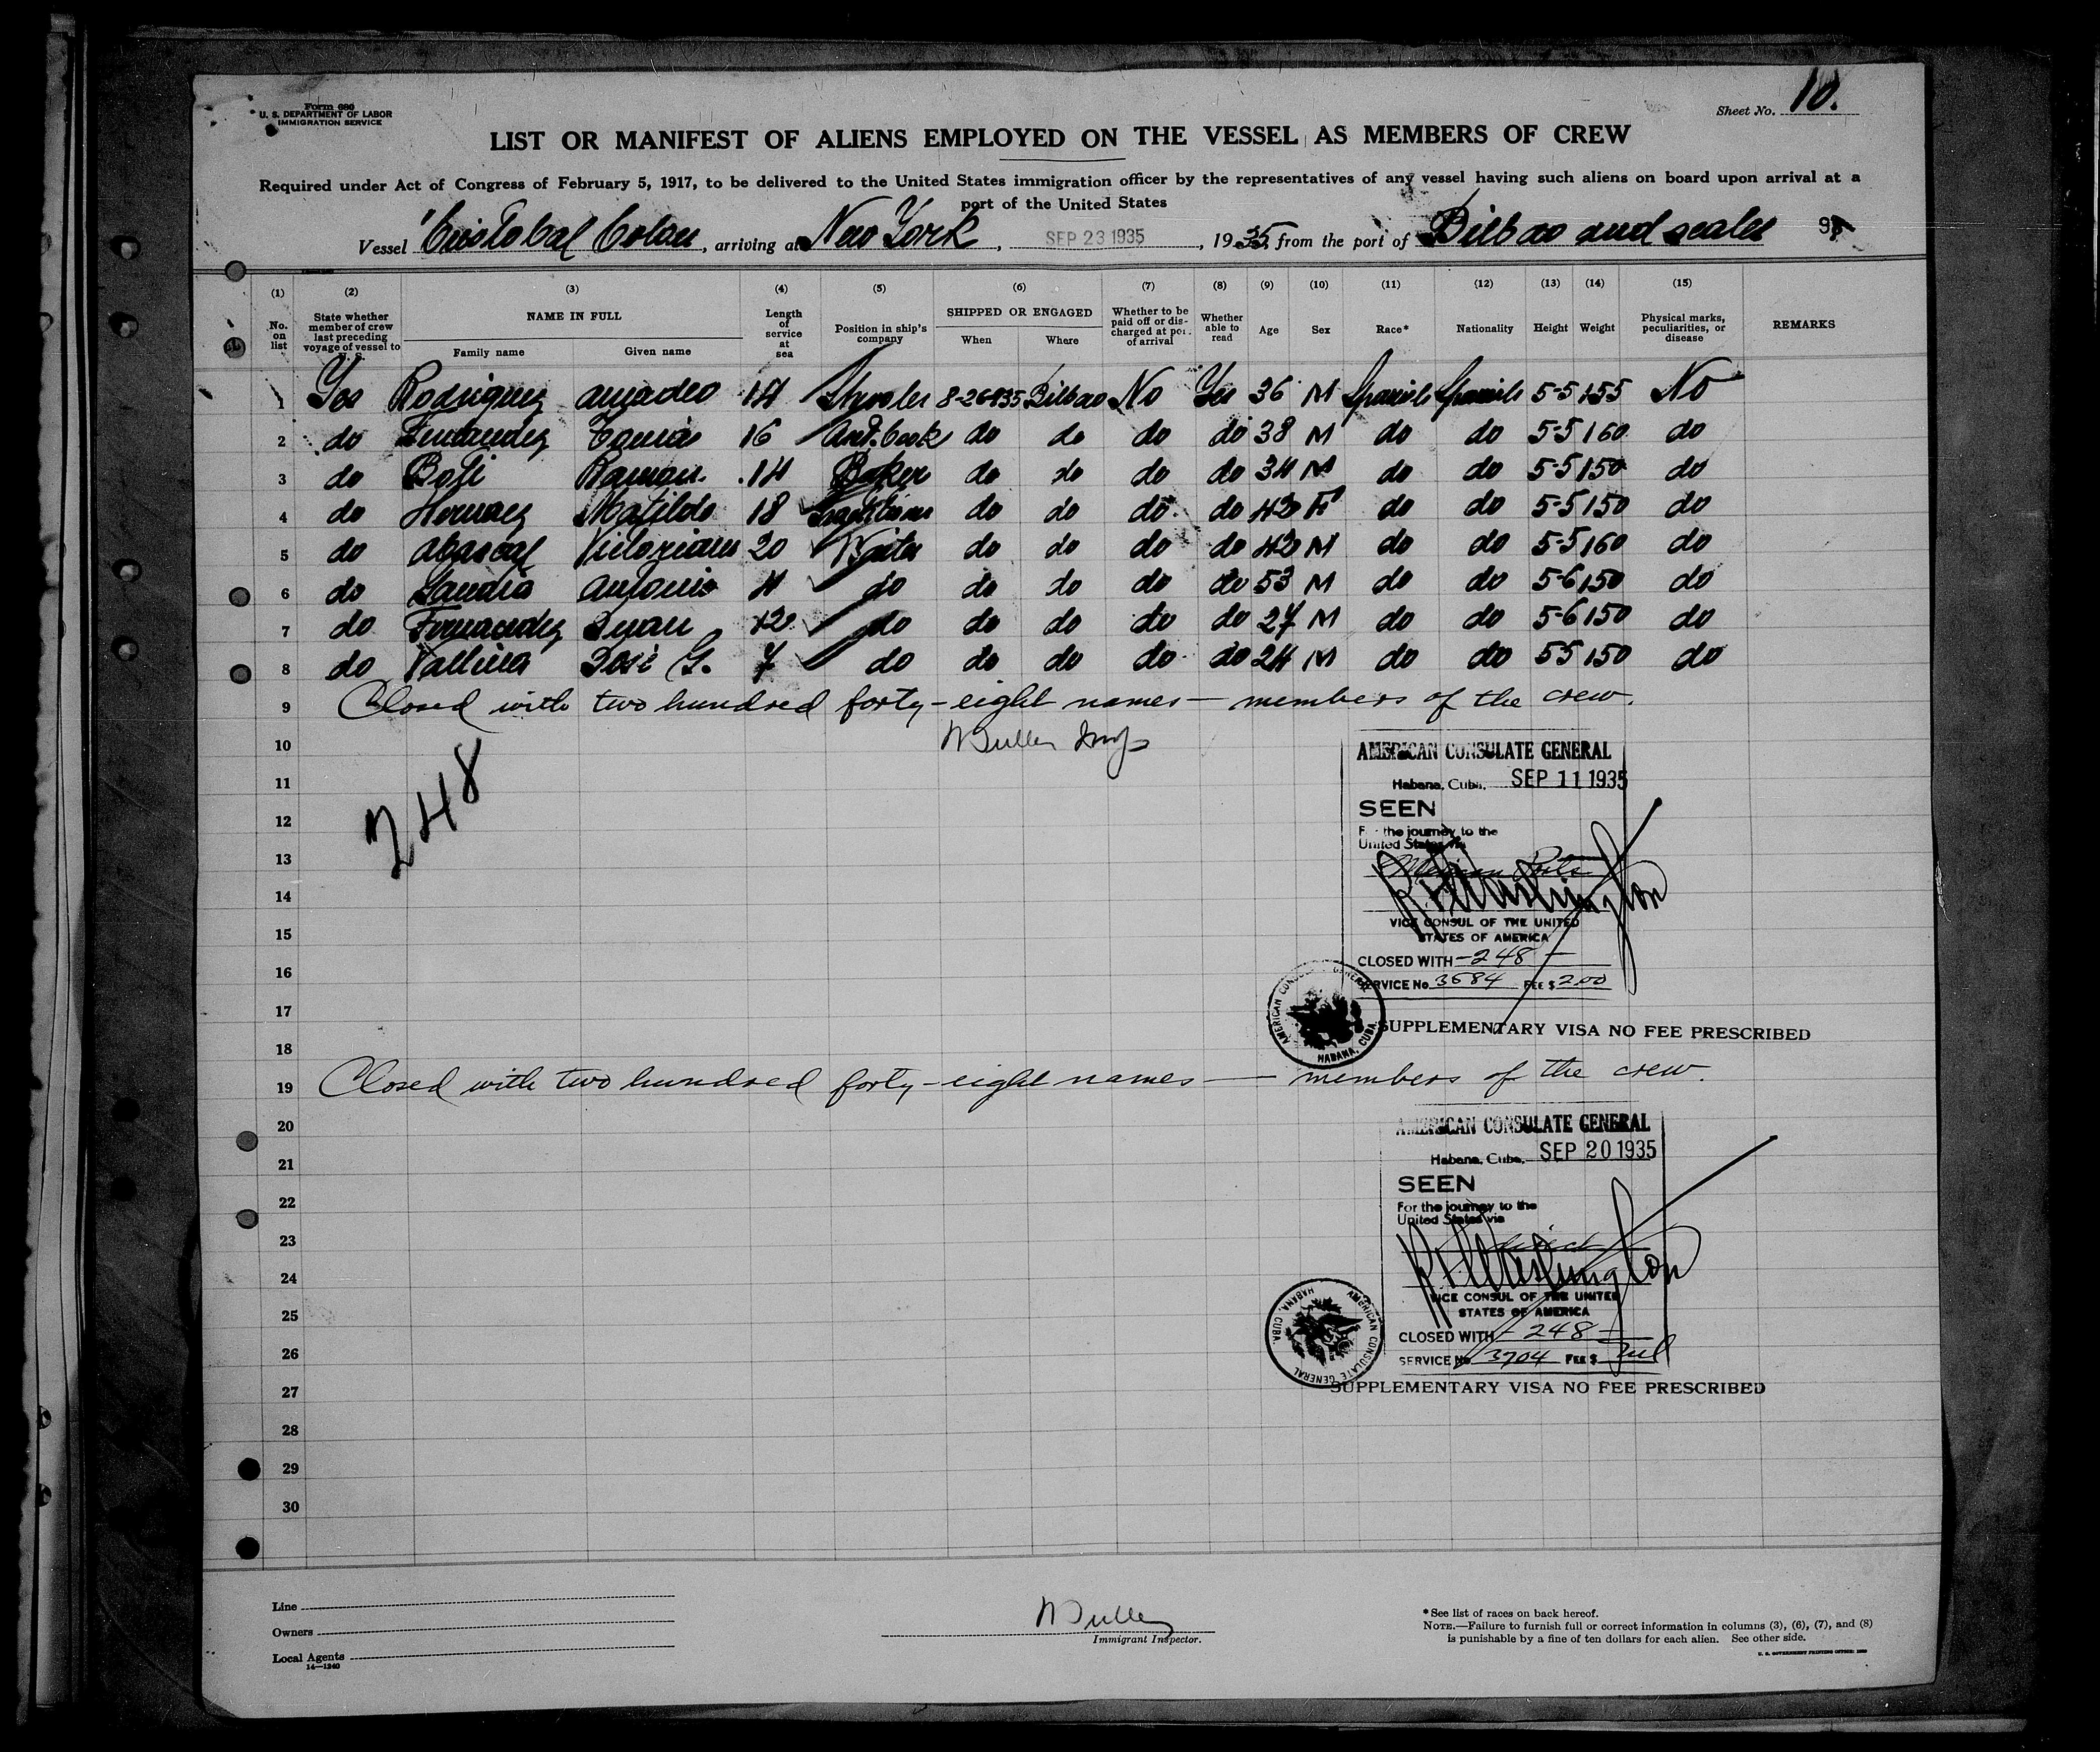 Form 680
U. S. DEPARTMENT OF LABOR
IMMIGRATION SERVICE
Sheet No. 10.
LIST OR MANIFEST OF ALIENS EMPLOYED ON THE VESSEL AS MEMBERS OF CREW
Required under Act of Congress of February 5, 1917, to be delivered to the United States immigration officer by the representatives of any vessel having such aliens on board upon arrival at a
port of the United States
Vessel Cristobal Colon, arriving at New York, SEP 23 1935, 1935, from the port of Bilbao and scales
(1) (2) (3) (4) (5) (6) (7) (8) (9) (10) (11) (12) (13) (14) (15)
No. on list State whether member of crew last preceding voyage of vessel to U. S. NAME IN FULL Family name Given name Length of service at sea Position in ship's company SHIPPED OR ENGAGED When Where Whether to be paid off or discharged at port of arrival Whether able to read Age Sex Race* Nationality Height Weight Physical marks, peculiarities, or disease REMARKS
1 Yes Rodriguez Amadeo 14 8-26-935 Bilbao No Yes 36 M Spanish Spanish 5-5 155 No
2 do Fernandez 16 Asst. Cook do do do do 38 M do do 5-5 160 do
3 do Ramon 14 Baker do do do do 34 M do do 5-5 150 do
4 do Matilde 18 do do do do 42 F do do 5-5 150 do
5 do Abascal Victoriano 20 Waiter do do do do 42 M do do 5-5 160 do
6 do Antonio do do do do do 53 M do do 5-6 150 do
7 do Fernandez Juan 12 do do do do do 27 M do do 5-6 150 do
8 do Vallina José G. 7 do do do do do 24 M do do 55 150 do
9 Closed with two hundred forty-eight names — members of the crew.
10
11
12
13
14
15
16
17
18
248
AMERICAN CONSULATE GENERAL
Habana, Cuba, SEP 11 1935
SEEN
For the journey to the
United States via
VICE CONSUL OF THE UNITED
STATES OF AMERICA
CLOSED WITH -248-
SERVICE No. 3584 FEE $ 2.00
AMERICAN CONSULATE GENERAL HABANA, CUBA
SUPPLEMENTARY VISA NO FEE PRESCRIBED
19 Closed with two hundred forty-eight names — members of the crew.
20
21
22
23
24
25
26
27
28
29
30
AMERICAN CONSULATE GENERAL
Habana, Cuba, SEP 20 1935
SEEN
For the journey to the
United States via
direct
VICE CONSUL OF THE UNITED
STATES OF AMERICA
CLOSED WITH - 248 -
SERVICE No. 3704 FEE $ nil
AMERICAN CONSULATE GENERAL HABANA, CUBA
SUPPLEMENTARY VISA NO FEE PRESCRIBED
Line
Owners
Local Agents
14—1240
Immigrant Inspector.
*See list of races on back hereof.
NOTE.—Failure to furnish full or correct information in columns (3), (6), (7), and (8)
is punishable by a fine of ten dollars for each alien. See other side.